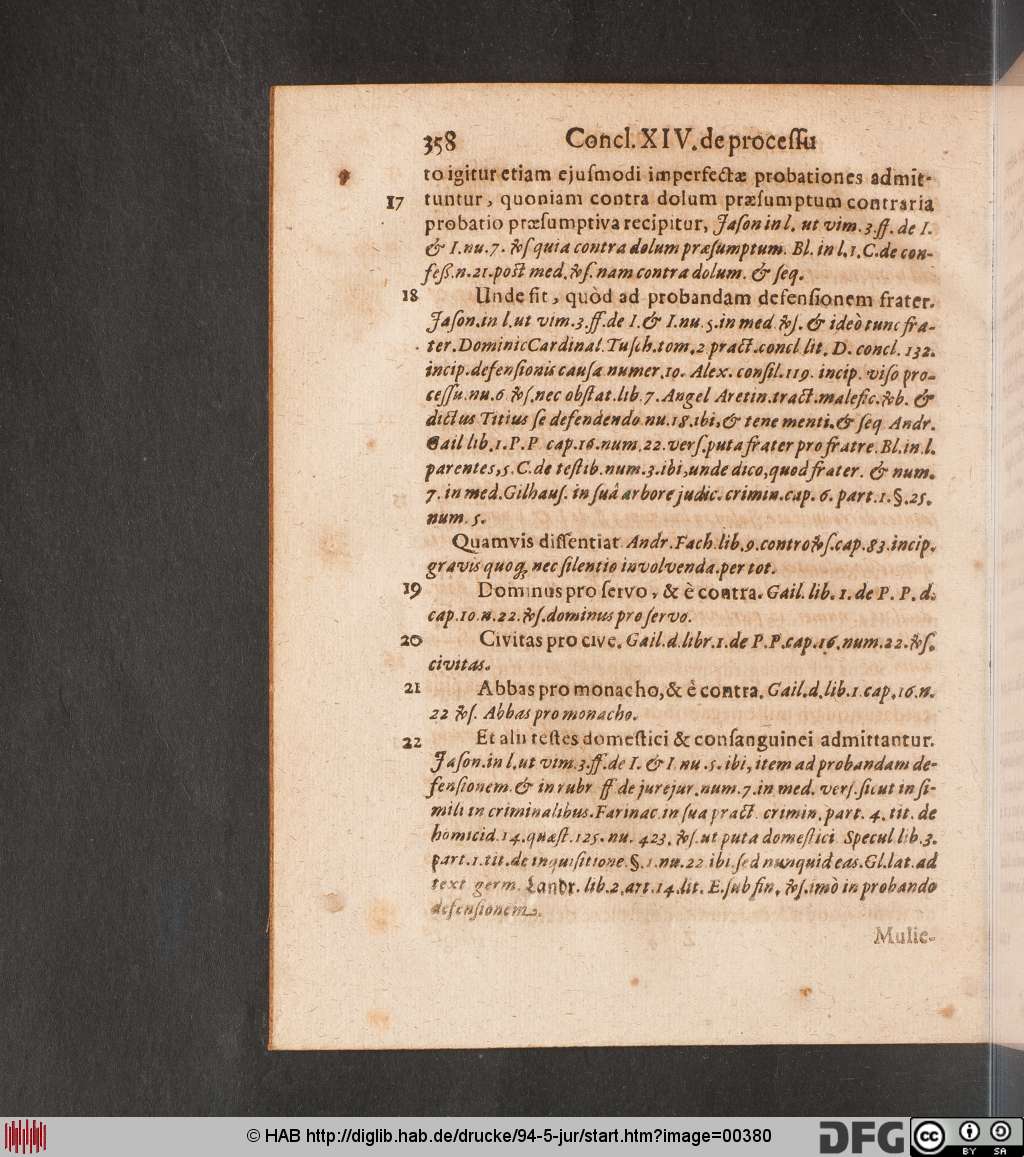 358 Concl. XIV. de processu
to igitur etiam ejusmodi imperfectæ probationes admit-
17 tuntur, quoniam contra dolum præsumptum contraria
probatio præsumptiva recipitur, Jason in l. ut vim. 3. ff. de I.
& I. nu. 7. vers. quia contra dolum præsumptum. Bl. in l. 1. C. de con-
feß. n. 21. post med. vers. nam contra dolum. & seq.
18 Unde fit, quòd ad probandam defensionem frater.
Jason. in l. ut vim. 3. ff. de I. & I. nu. 5. in med. vers. & ideò tunc fra-
ter. Dominic Cardinal. Tusch. tom. 2 pract. concl. lit. D. concl. 132.
incip. defensionis causa numer. 19. Alex. consil. 119. incip. viso pro-
cessu. nu. 6 vers. nec obstat. lib. 7. Angel Aretin. tract. malefic. verb. &
dictus Titius se defendendo nu. 18. ibi, & tene menti. & seq. Andr.
Gail lib. 1. P. P. cap. 16. num. 22. vers. puta frater pro fratre. Bl. in l.
parentes, 5. C. de testib. num. 3. ibi, unde dico, quod frater. & num.
7. in med. Gilhaus. in suâ arbore judic. crimin. cap. 6. part. 1. §. 25.
num. 5.
Quamvis dissentiat Andr. Fach. lib. 9. controvers. cap. 83. incip.
gravis quoq; nec silentio involvenda. per tot.
19 Dominus pro servo, & è contra. Gail. lib. 1. de P. P. d.
cap. 10. n. 22. vers. dominus pro servo.
20 Civitas pro cive. Gail. d. libr. 1. de P. P. cap. 16. num. 22. vers.
civitas.
21 Abbas pro monacho, & è contra. Gail. d. lib. 1. cap. 16. n.
22 vers. Abbas pro monacho.
22 Et alii testes domestici & consanguinei admittantur.
Jason. in l. ut vim. 3. ff. de I. & I. nu. 5. ibi, item ad probandam de-
fensionem. & in rubr. ff. de jurejur. num. 7. in med. vers. sicut in si-
mili in criminalibus. Farinac. in sua pract. crimin. part. 4. tit. de
homicid. 14. quæst. 125. nu. 423. vers. ut puta domestici. Specul lib. 3.
part. 1. tit. de inquisitione. §. 1. nu. 22 ibi. sed nunquid eas. Gl. lat. ad
text germ. Landr. lib. 2. art. 14. lit. E. sub fin. vers. imò in probando
defensionem.
Mulie-
© HAB http://diglib.hab.de/drucke/94-5-jur/start.htm?image=00380
DFG
CC BY SA